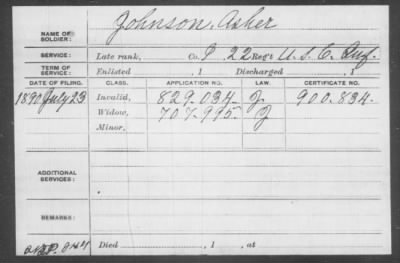 Johnson, Asher
NAME OF
SOLDIER:
SERVICE:
Late rank, Co. 22 Reg't U. S. C. Inf.
TERM OF
SERVICE:
Enlisted , 1 Discharged , 1
DATE OF FILING. CLASS. APPLICATION NO. LAW. CERTIFICATE NO.
1890 July 23 Invalid, 829.034 J. 900.834.
Widow, 707.995. J
Minor,
ADDITIONAL
SERVICES:
REMARKS:
Died , 1 , at